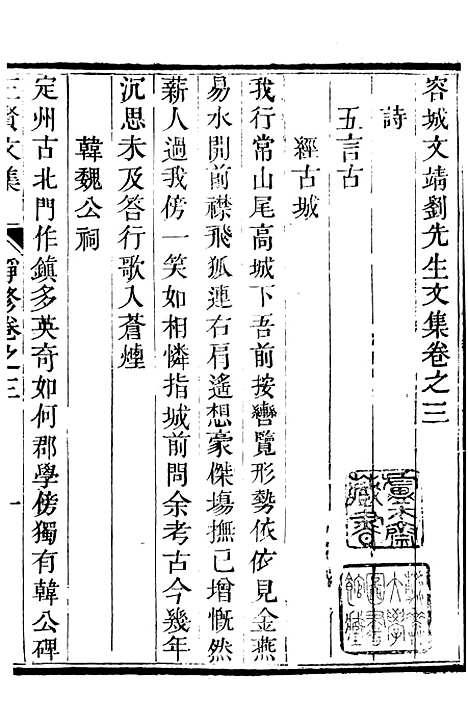 容城文靖劉先生文集卷之三
詩
五言古
經古城
我行常山尾高城下吾前按轡覽形勢依依見金燕
易水開前襟飛狐連右肩遙想豪傑場撫已增慨然
薪人過我傍一笑如相憐指城前問余考古今幾年
沉思未及答行歌入蒼煙
韓魏公祠
定州古北門作鎮多英奇如何郡學傍獨有韓公碑
三賢文集
靜修卷之三
一
藏書
大學
圖書
館藏